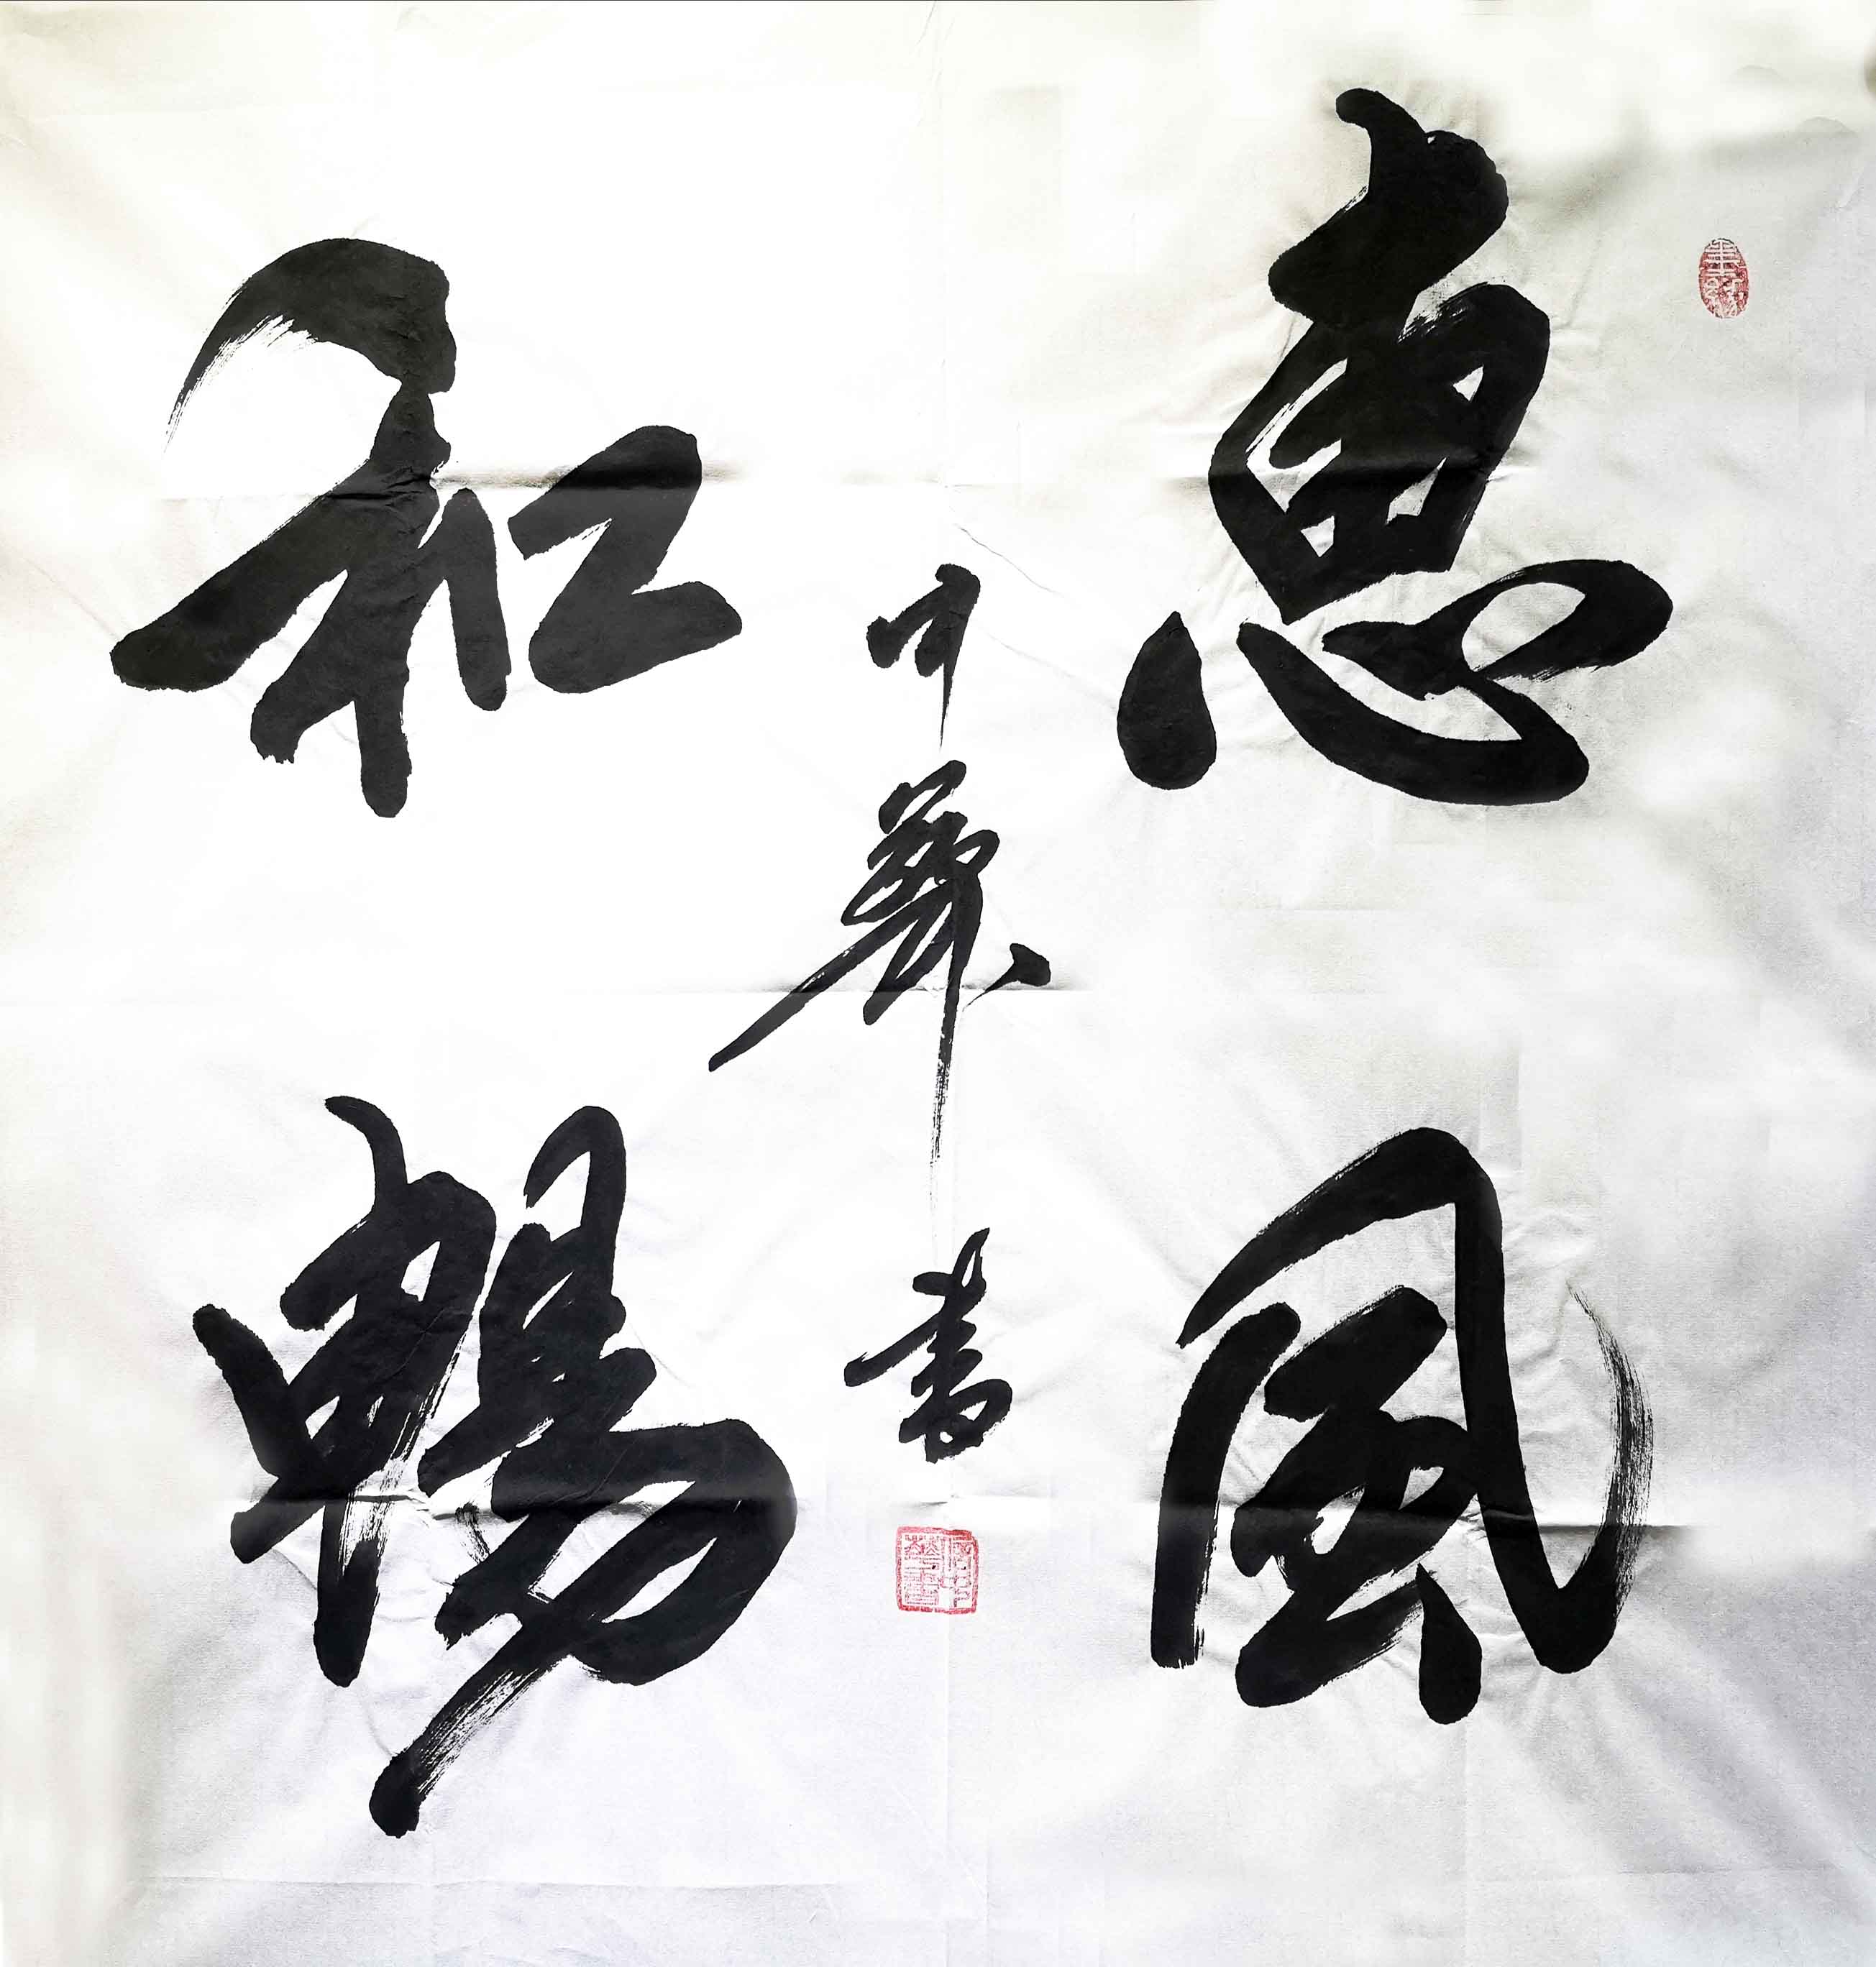 惠風
和暢
書